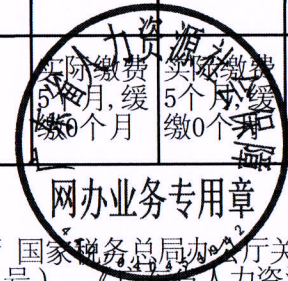 实际缴费
5个月,缓
缴0个月
实际缴费
5个月,缓
缴0个月
广东省人力资源社会保障
网办业务专用章
国家税务总局办公厅关
人力资源